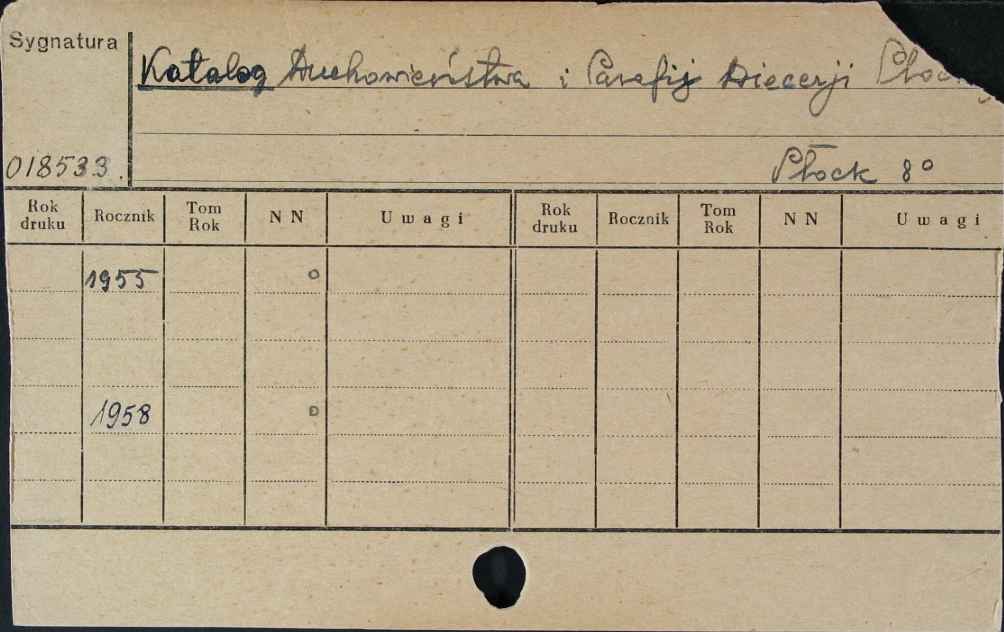 Sygnatura
Katalog Duchowieństwa i Parafij Diecezji
Płock 8°
018533.
Rok druku Rocznik Tom Rok NN Uwagi Rok druku Rocznik Tom Rok NN Uwagi
1955 o
1958 D